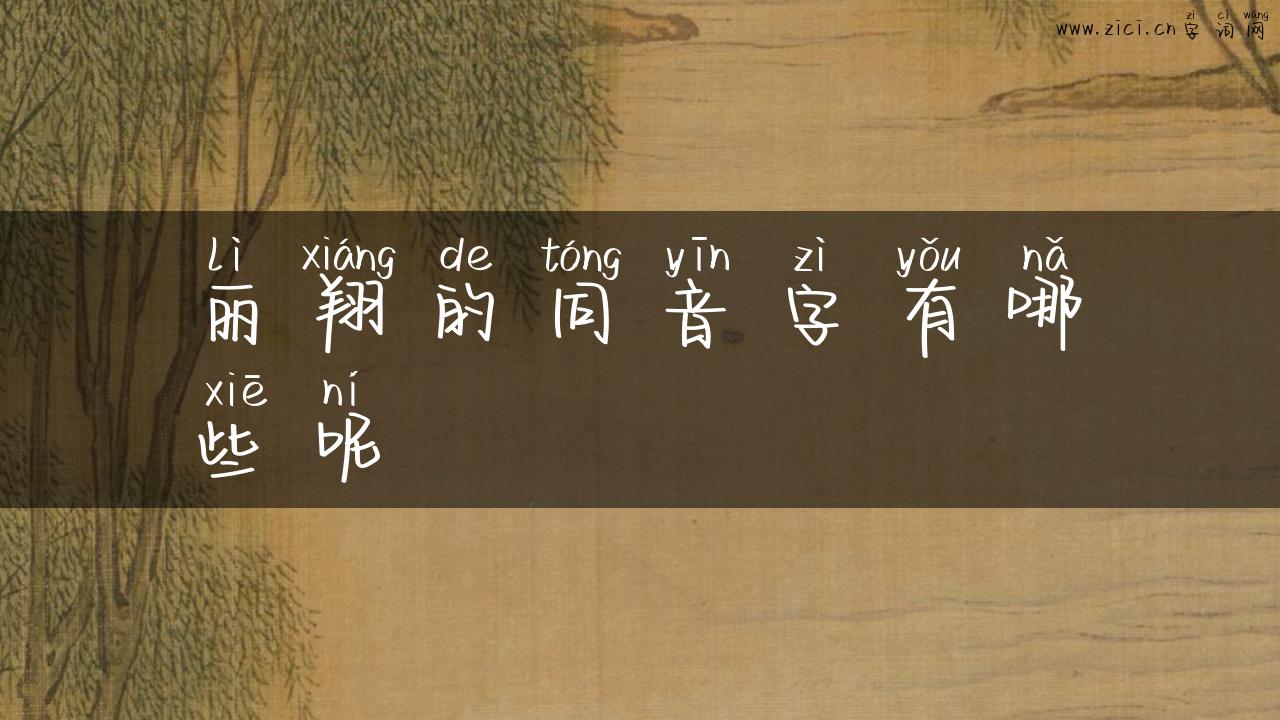 zì cí wǎng
www.zici.cn 字 词 网
lì xiáng de tóng yīn zì yǒu nǎ
丽 翔 的 同 音 字 有 哪
xiē ní
些 呢